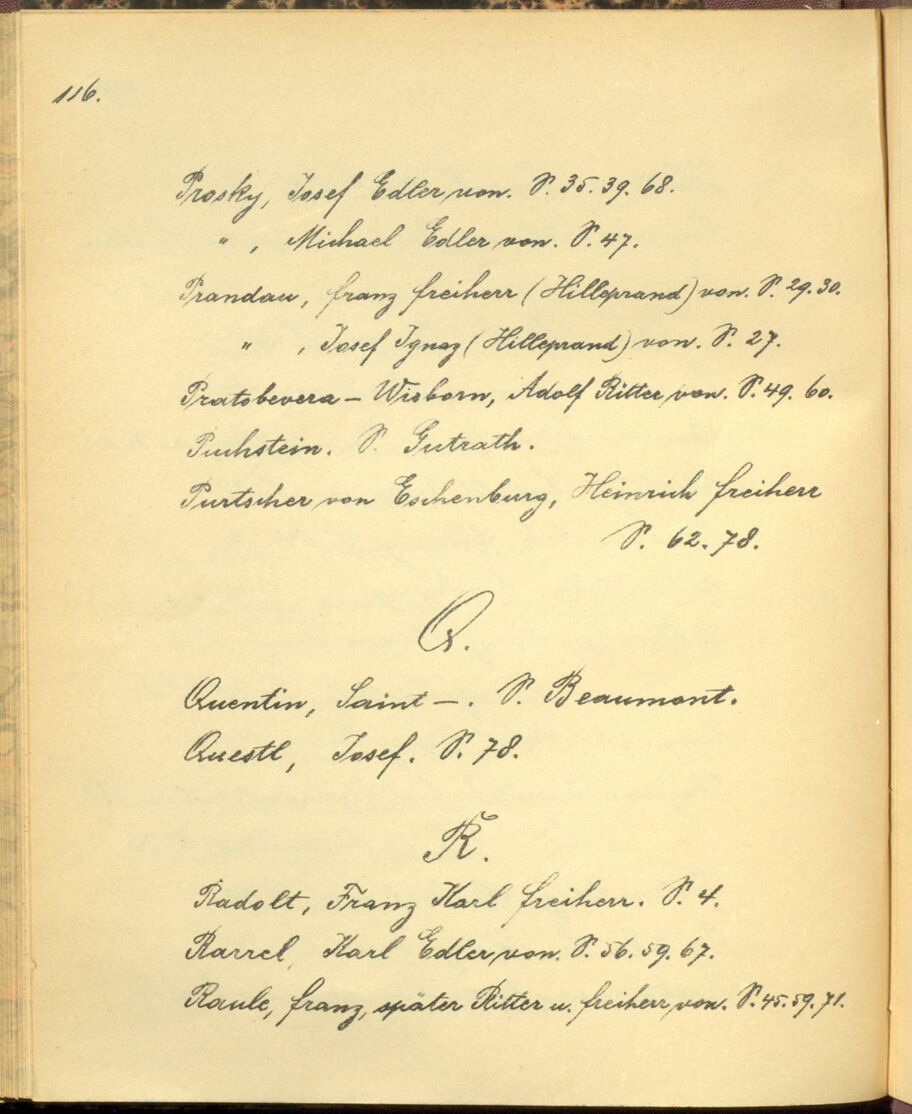 116.
Prosky, Josef Edler von. S. 35. 39. 68.
" , Michael Edler von. S. 47.
Prandau, Franz Freiherr (Hilleprand) von. S. 29. 30.
" , Josef Ignaz (Hilleprand) von. S. 27.
Pratobevera – Wisborn, Adolf Ritter von. S. 49. 60.
Puchstein. S. Gutrath.
Purtscher von Eschenburg, Heinrich Freiherr
S. 62. 78.
Q.
Quentin, Saint –. S. Beaumont.
Questl, Josef. S. 78.
R.
Radolt, Franz Karl Freiherr. S. 4.
Rarrel, Karl Edler von. S. 56. 59. 67.
Raule, Franz, später Ritter u. Freiherr von. S. 45. 59. 71.